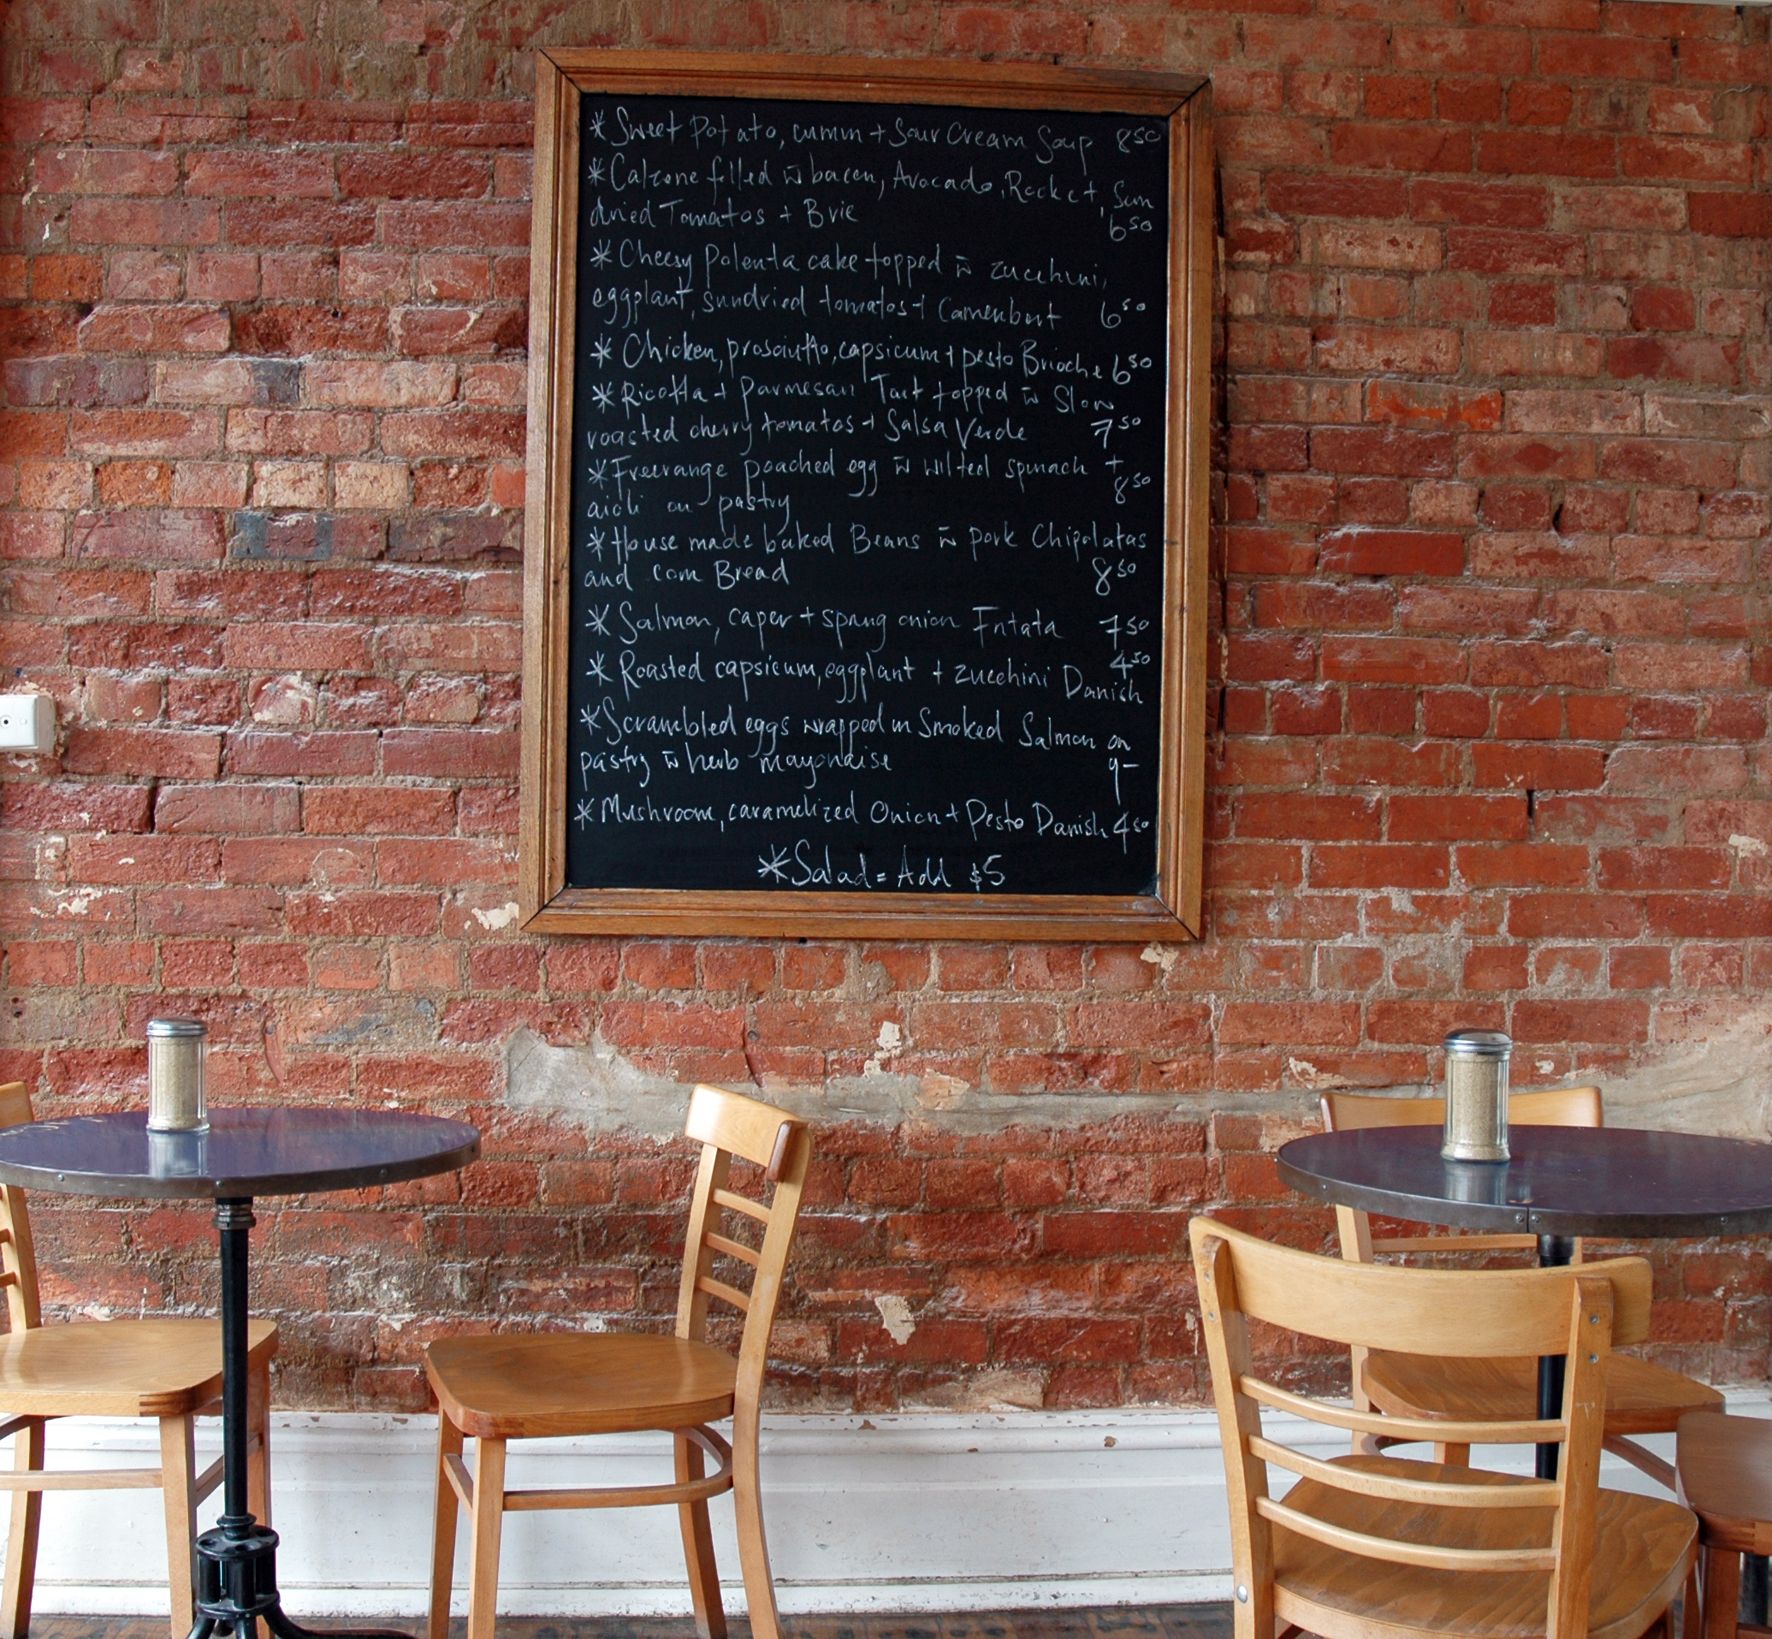 * Sweet Potato, cumin + Sour Cream Soup 8 50
* Calzone filled w̄ bacon, Avocado, Rocket, Sun
dried Tomatos + Brie 6 50
* Cheesy Polenta cake topped w̄ zucchini,
eggplant, sundried tomatos + Camenbert 6 50
* Chicken, prosciutto, capsicum + pesto Brioche 6 50
* Ricotta + Parmesan Tart topped w̄ Slow
roasted cherry tomatos + Salsa Verde 7 50
* Freerange poached egg w̄ wilted spinach +
aioli on pastry 8 50
* House made baked Beans w̄ pork Chipolatas
and corn Bread 8 50
* Salmon, caper + spring onion Fritata 7 50
* Roasted capsicum, eggplant + zucchini Danish 4 50
* Scrambled eggs wrapped in Smoked Salmon on
pastry w̄ herb mayonaise 9 –
* Mushroom, caramelized Onion + Pesto Danish 4 50
* Salad = Add $5